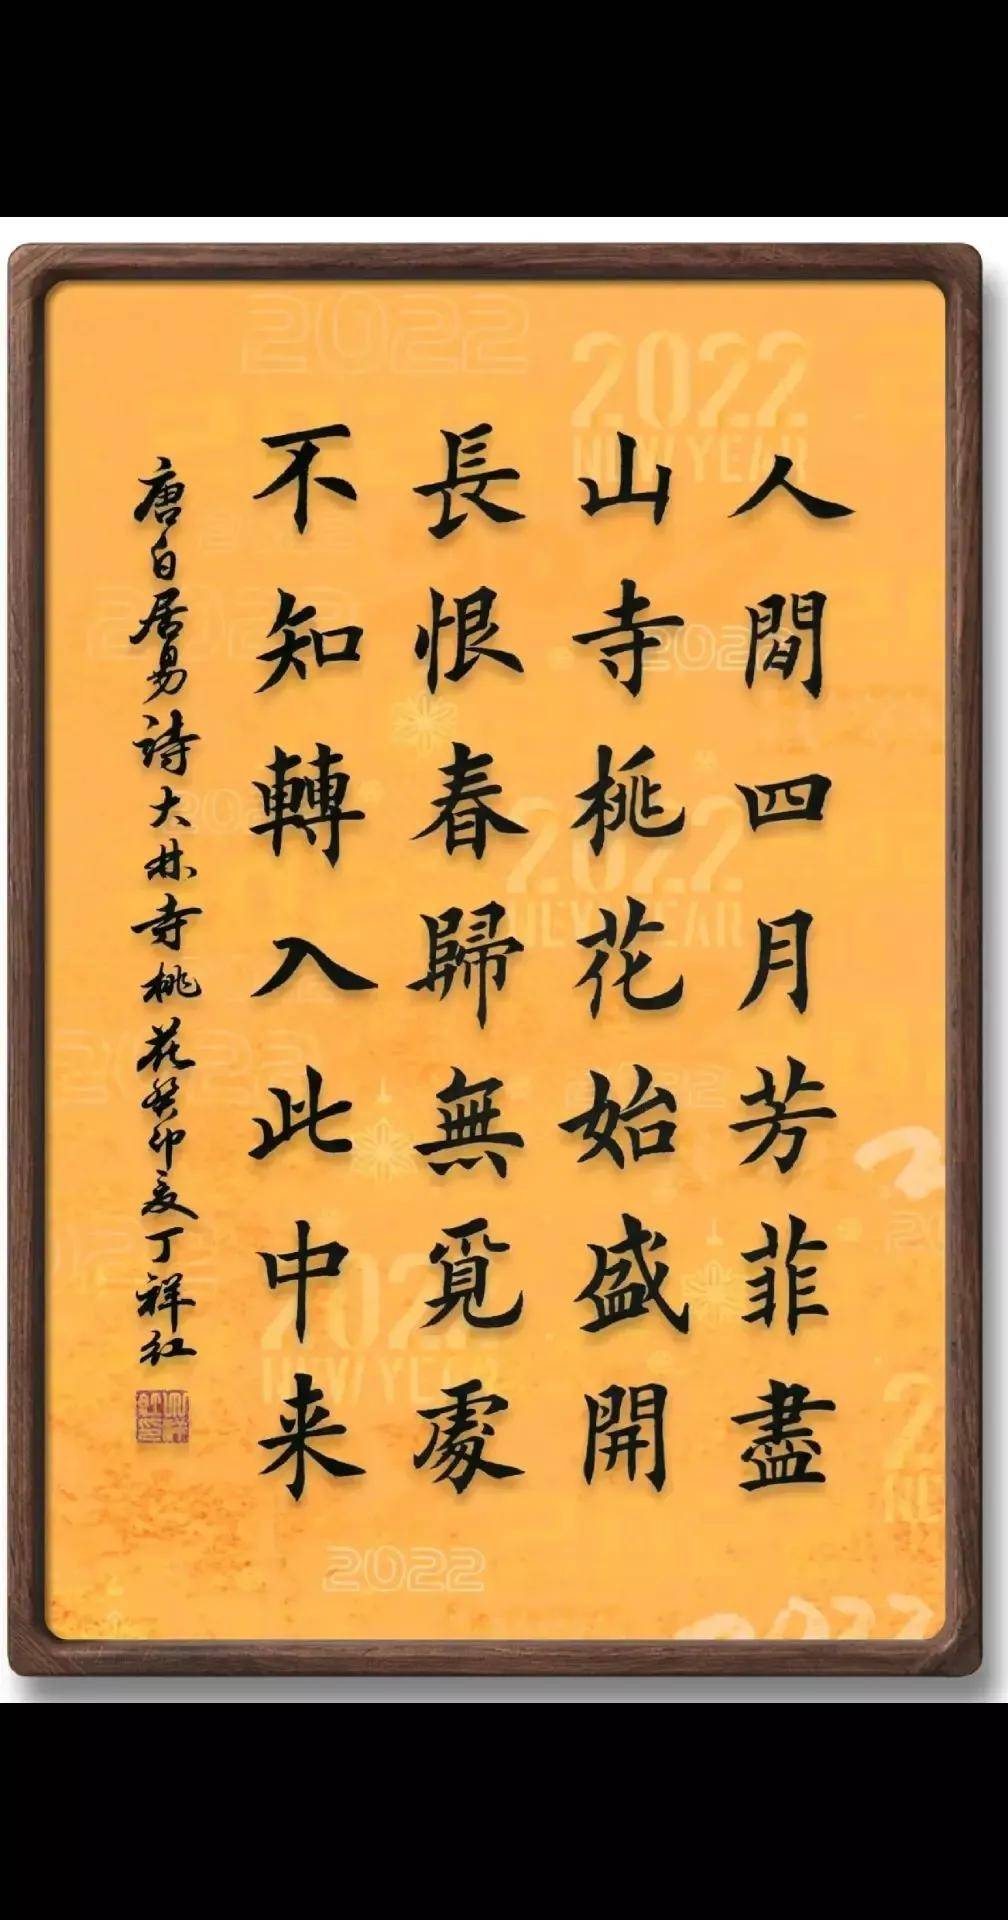 人間四月芳菲盡
山寺桃花始盛開
長恨春歸無覓處
不知轉入此中来
唐白居易詩大林寺桃花癸卯夏丁祥红
2022
2022
NEW YEAR
2022
2022
NEW YEAR
2022
2022
NEW YEAR
2022
2022